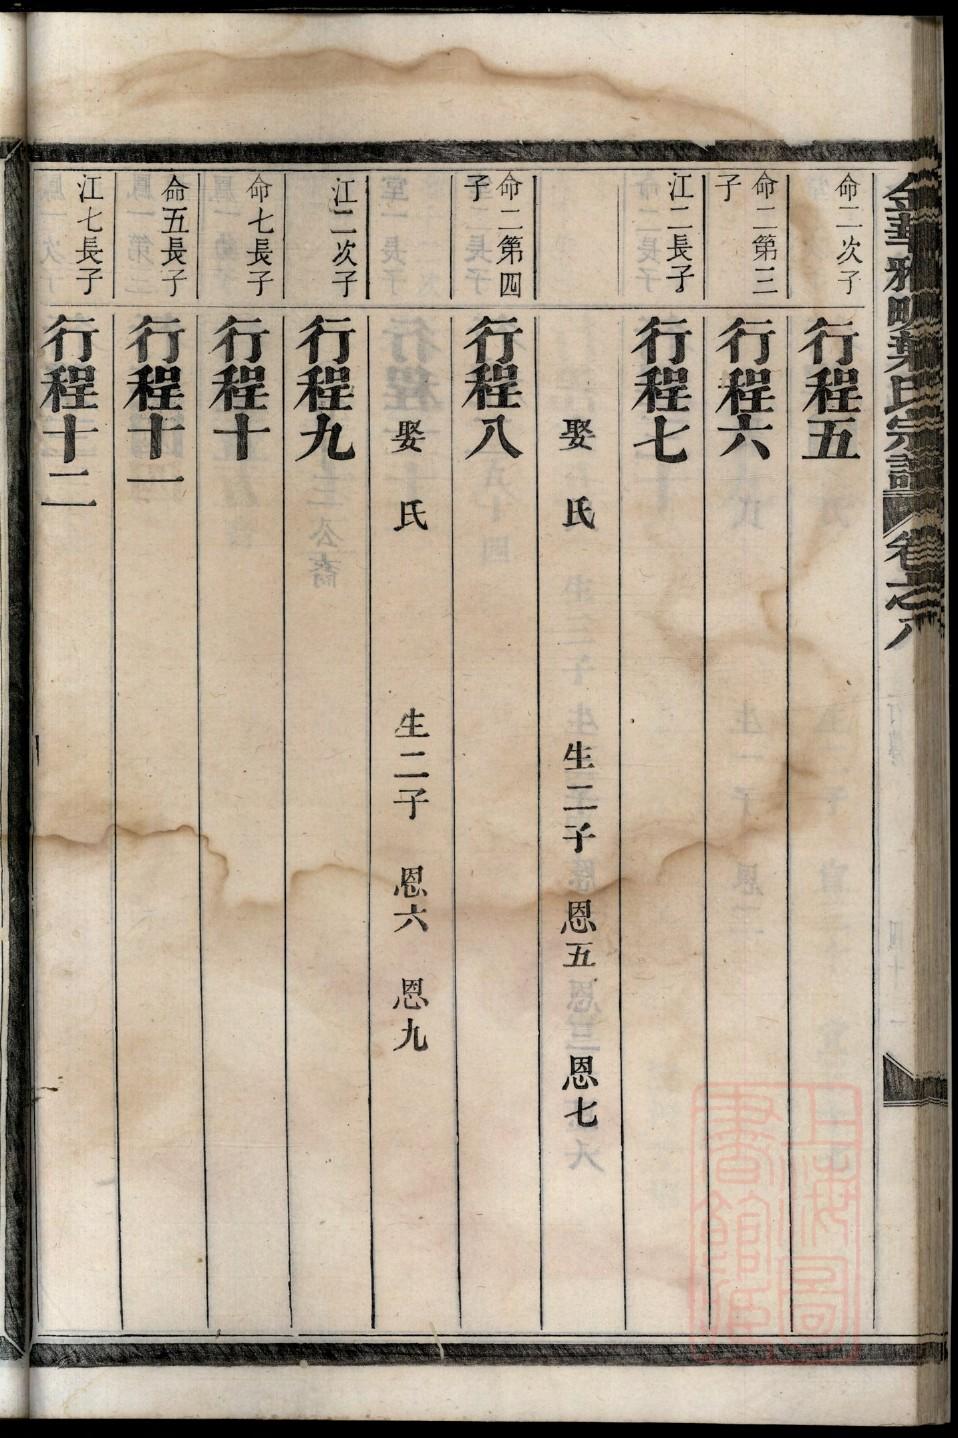 金華雅畈葉氏宗譜 卷之八
命二次子
行程五
命二第三子
行程六
江二長子
行程七
娶 氏 生二子 恩五 恩七
命二第四子
行程八
娶 氏 生二子 恩六 恩九
江二次子
行程九
命七長子
行程十
命五長子
行程十一
江七長子
行程十二
上海圖書館藏